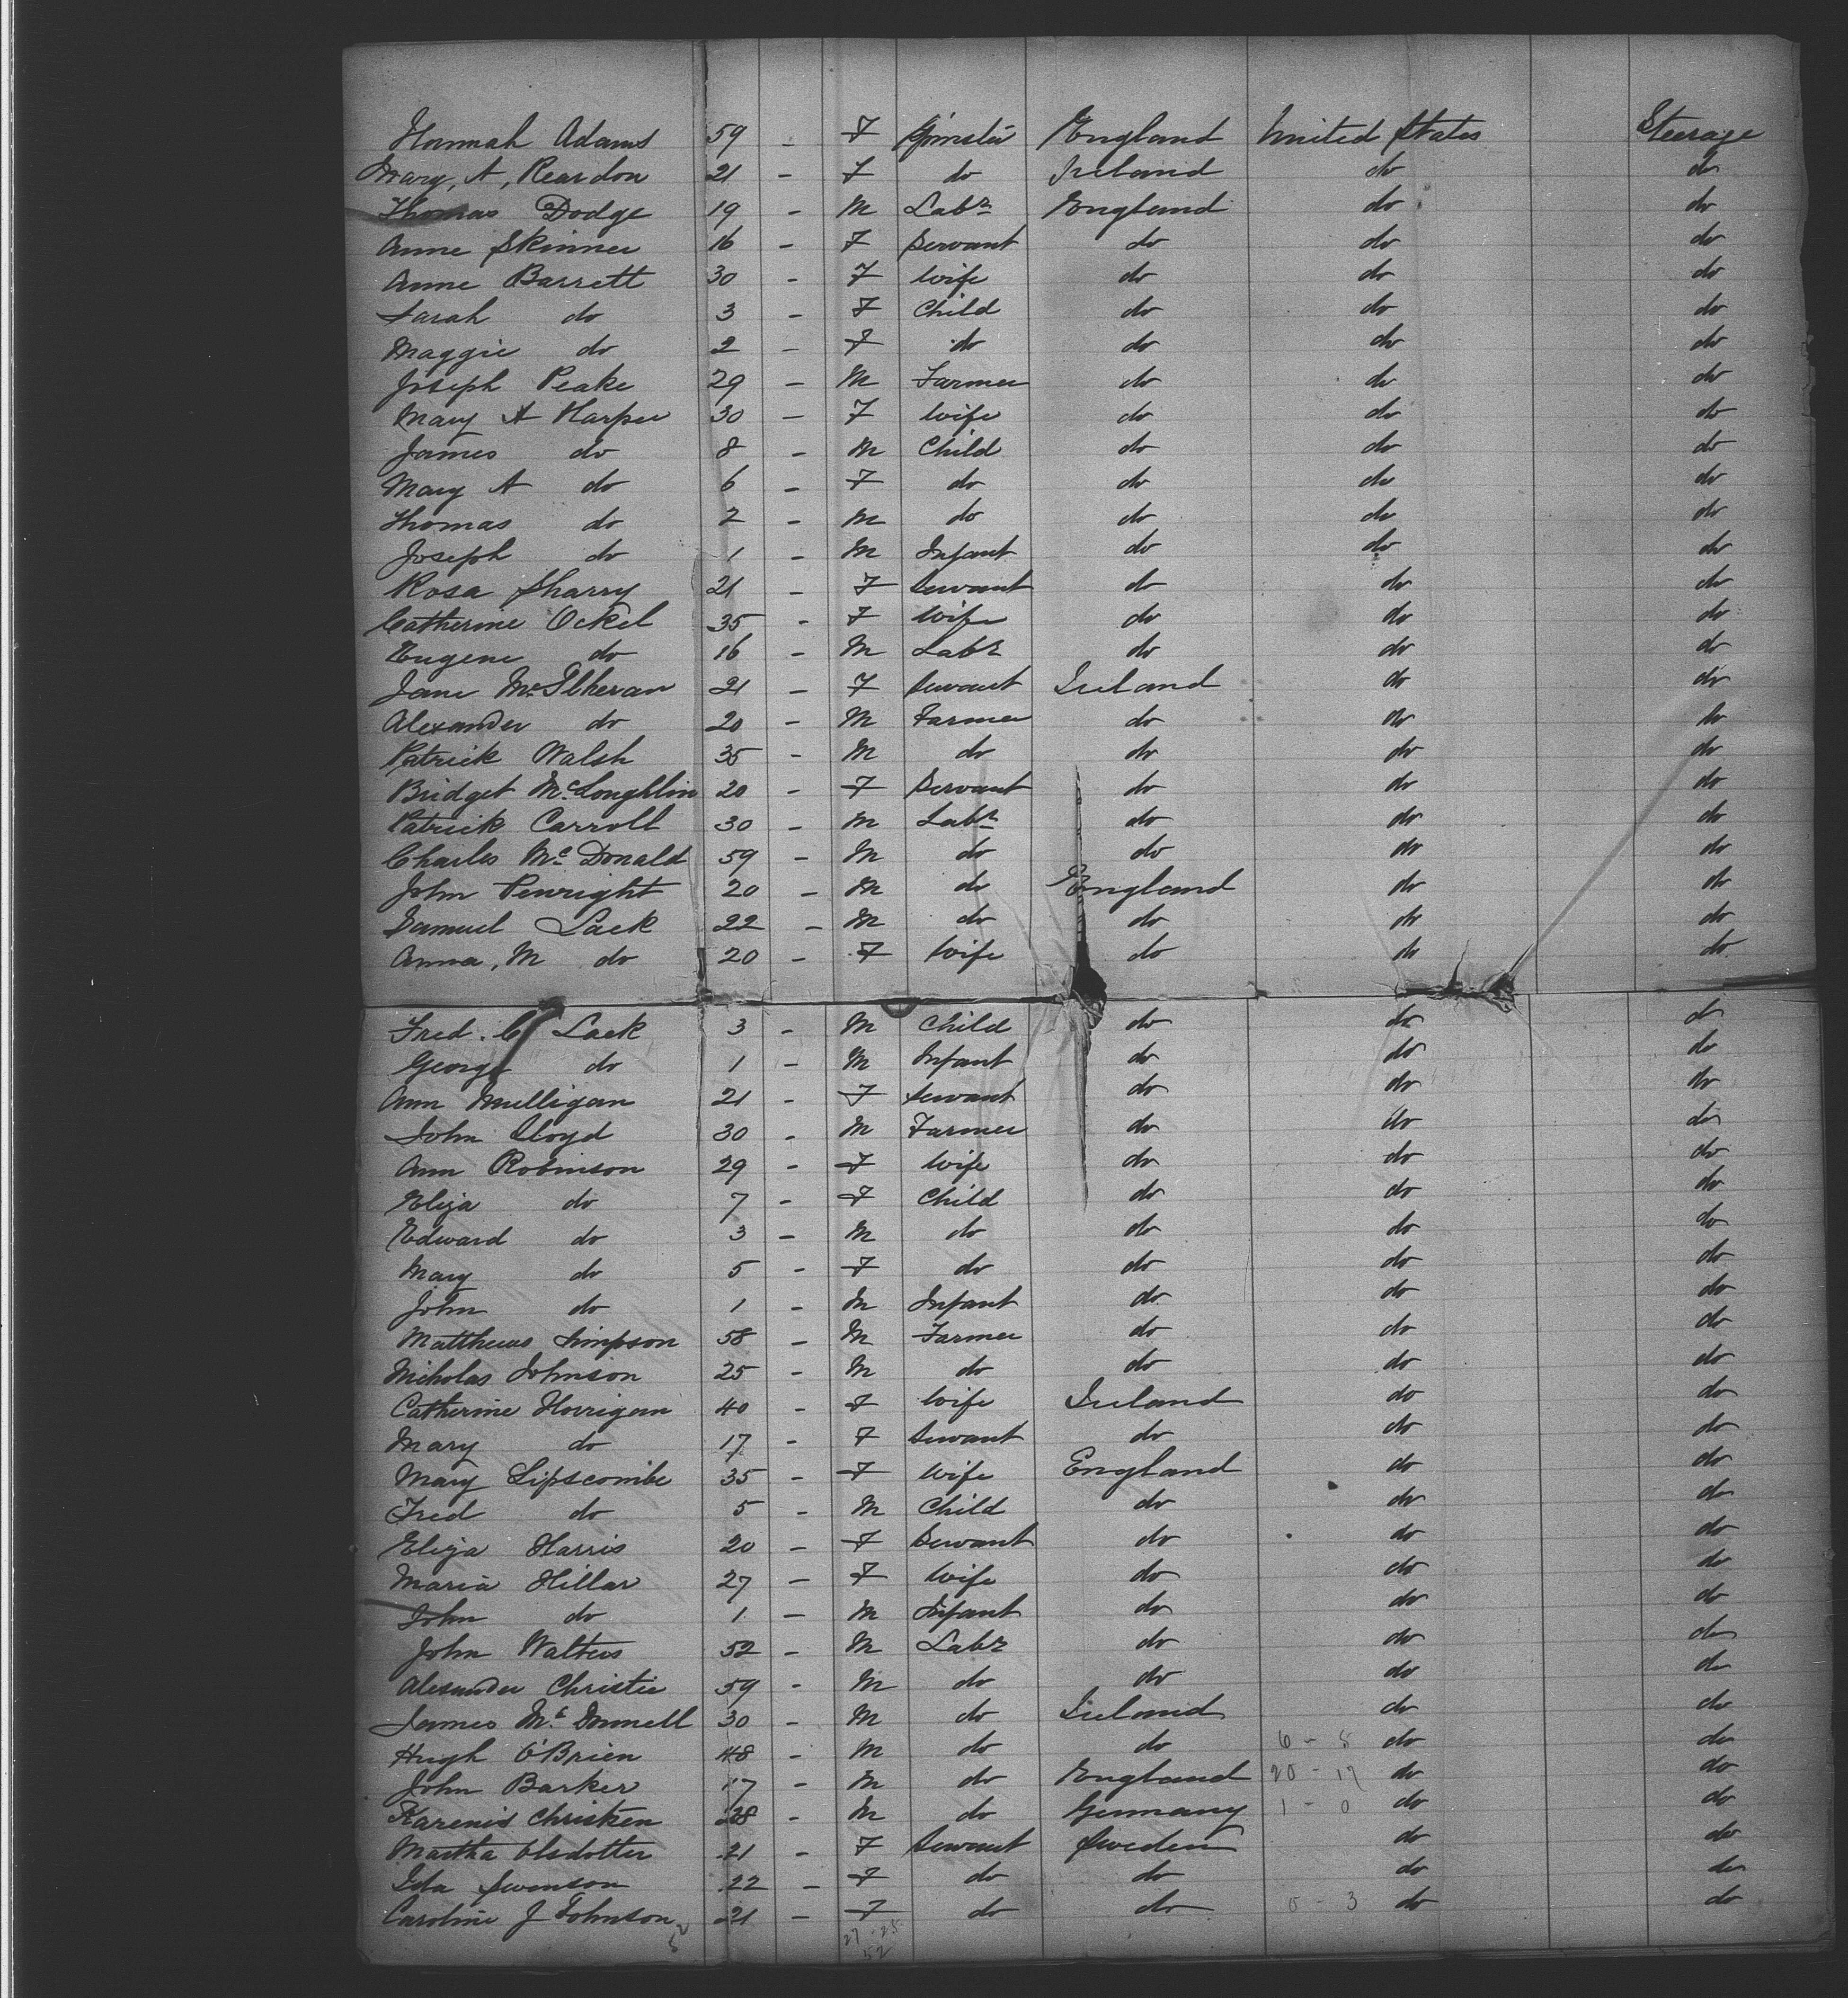 Hannah Adams 59 - F Spinster England United States Steerage
Mary, A, Reardon 21 - F do Ireland do do
Thomas Dodge 19 - M Labr England do do
Anne Skinner 16 - F Servant do do do
Anne Barrett 30 - F Wife do do do
Sarah do 3 - F Child do do do
Maggie do 2 - F do do do do
Joseph Peake 29 - M Farmer do do do
Mary A Harper 30 - F Wife do do do
James do 8 - M Child do do do
Mary A do 6 - F do do do do
Thomas do 2 - M do do do do
Joseph do 1 - M Infant do do do
Rosa Sharry 21 - F Servant do do do
Catherine Ockel 35 - F Wife do do do
Eugene do 16 - M Labr do do do
Jane McIlheran 21 - F Servant Ireland do do
Alexander do 20 - M Farmer do do do
Patrick Walsh 35 - M do do do do
Bridget McLoughlin 20 - F Servant do do do
Patrick Carroll 30 - M Labr do do do
Charles McDonald 59 - M do do do do
John Penright 20 - M do England do do
Samuel Lack 22 - M do do do do
Anna, M do 20 - F Wife do do do
Fred. C Lack 3 - M Child do do do
George do 1 - M Infant do do do
Ann Mulligan 21 - F Servant do do do
John Lloyd 30 - M Farmer do do do
Ann Robinson 29 - F Wife do do do
Eliza do 7 - F Child do do do
Edward do 3 - M do do do do
Mary do 5 - F do do do do
John do 1 - M Infant do do do
Matthews Simpson 58 - M Farmer do do do
Nicholas Johnson 25 - M do do do do
Catherine Horrigan 40 - F Wife Ireland do do
Mary do 17 - F Servant do do do
Mary Lipscombe 35 - F Wife England do do
Fred do 5 - M Child do do do
Eliza Harris 20 - F Servant do do do
Maria Hillar 27 - F Wife do do do
John do 1 - M Infant do do do
John Walters 52 - M Labr do do do
Alexander Christie 59 - M do do do do
James McDonnell 30 - M do Ireland do do
Hugh O'Brien 48 - M do do 6 - 5 do do
John Barker 17 - M do England 20 - 17 do do
Karenis Christen 28 - M do Germany 1 - 0 do do
Martha Olsdotter 21 - F Servant Sweden do do
Ida Swenson 22 - F do do do do
Caroline J Johnson 21 - F do do 0 - 3 do do
52 27 - 25
52